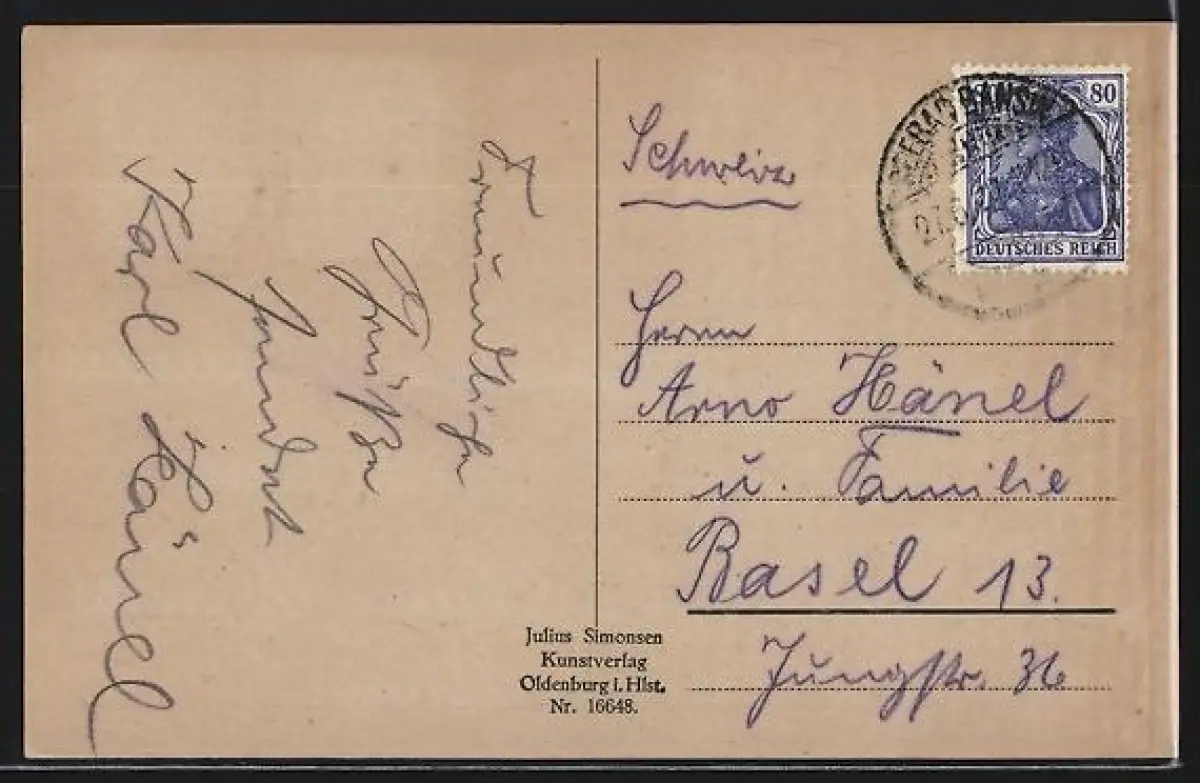 Freundliche
Grüße
sendet
Karl Hänel
Schweiz
Herrn
Arno Hänel
u. Familie
Basel 13.
Jungstr. 36
80
DEUTSCHES REICH
BANSIN
Julius Simonsen
Kunstverlag
Oldenburg i. Hlst.
Nr. 16648.